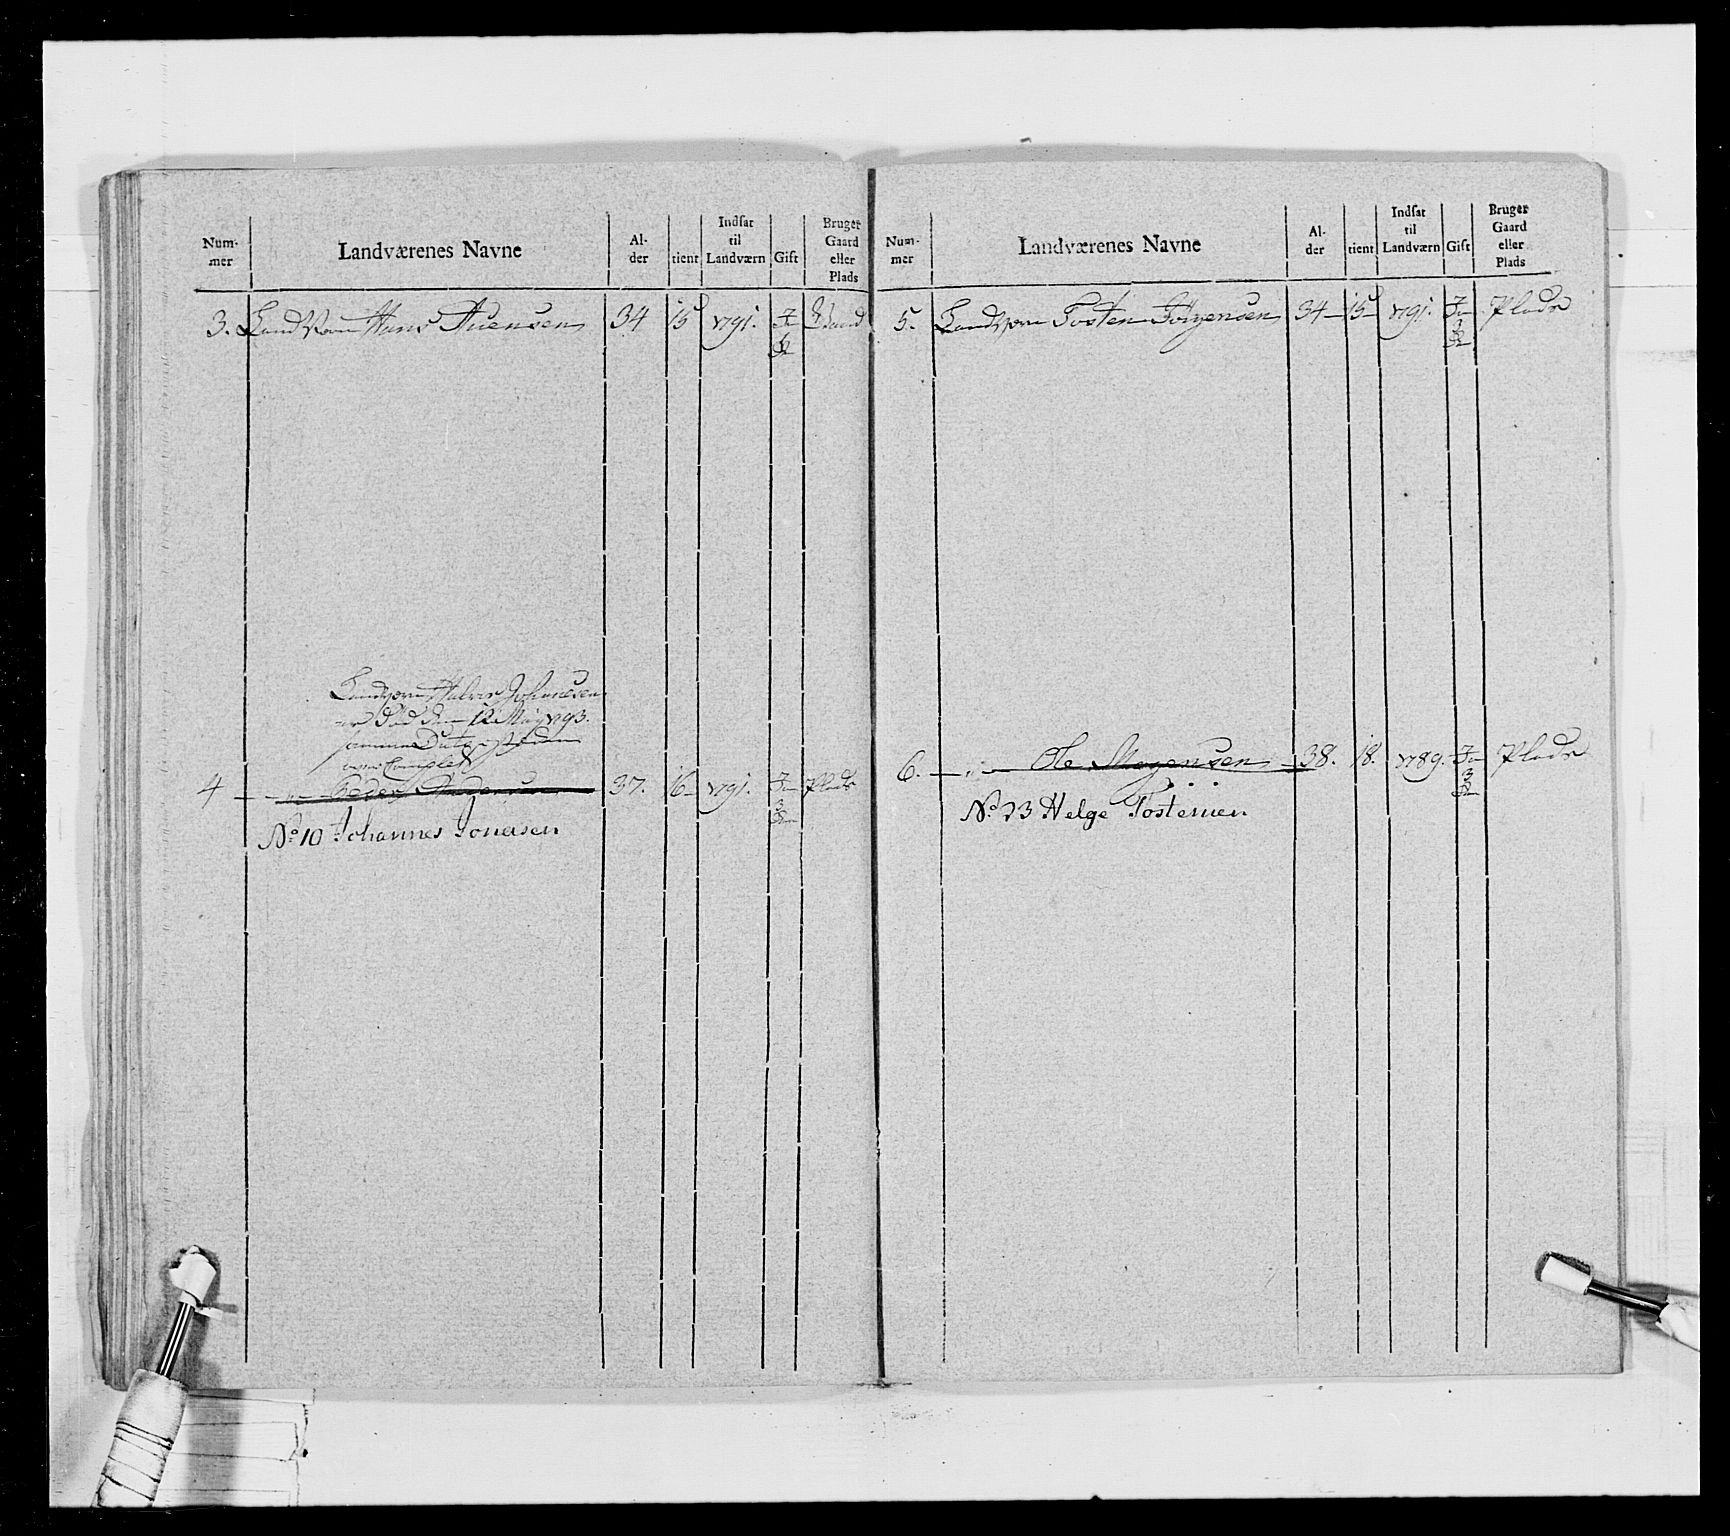 Num-
mer
Landværenes Navne
Al-
der
tient
Indsat
til
Landværn
Gift
Bruger
Gaard
eller
Plads
3. Landværn Hans Auensen 34 15 1791. Ja Gaard
Landværn Halvor Johannesen
er død den 12 May 1793.
samme Dato
over Complet
4 - " - Peder Andersen 37. 16 1791. Ja Plads
3
No 10 Johannes Jonersen
Num-
mer
Landværenes Navne
Al-
der
tient
Indsat
til
Landværn
Gift
Bruger
Gaard
eller
Plads
5. Landværn Tosten Törgensen 34 15 1791. Ja Plads
6. - " - Ole Mogensen 38. 18. 1789. Ja Plads
3
No 23 Helge Tostensen